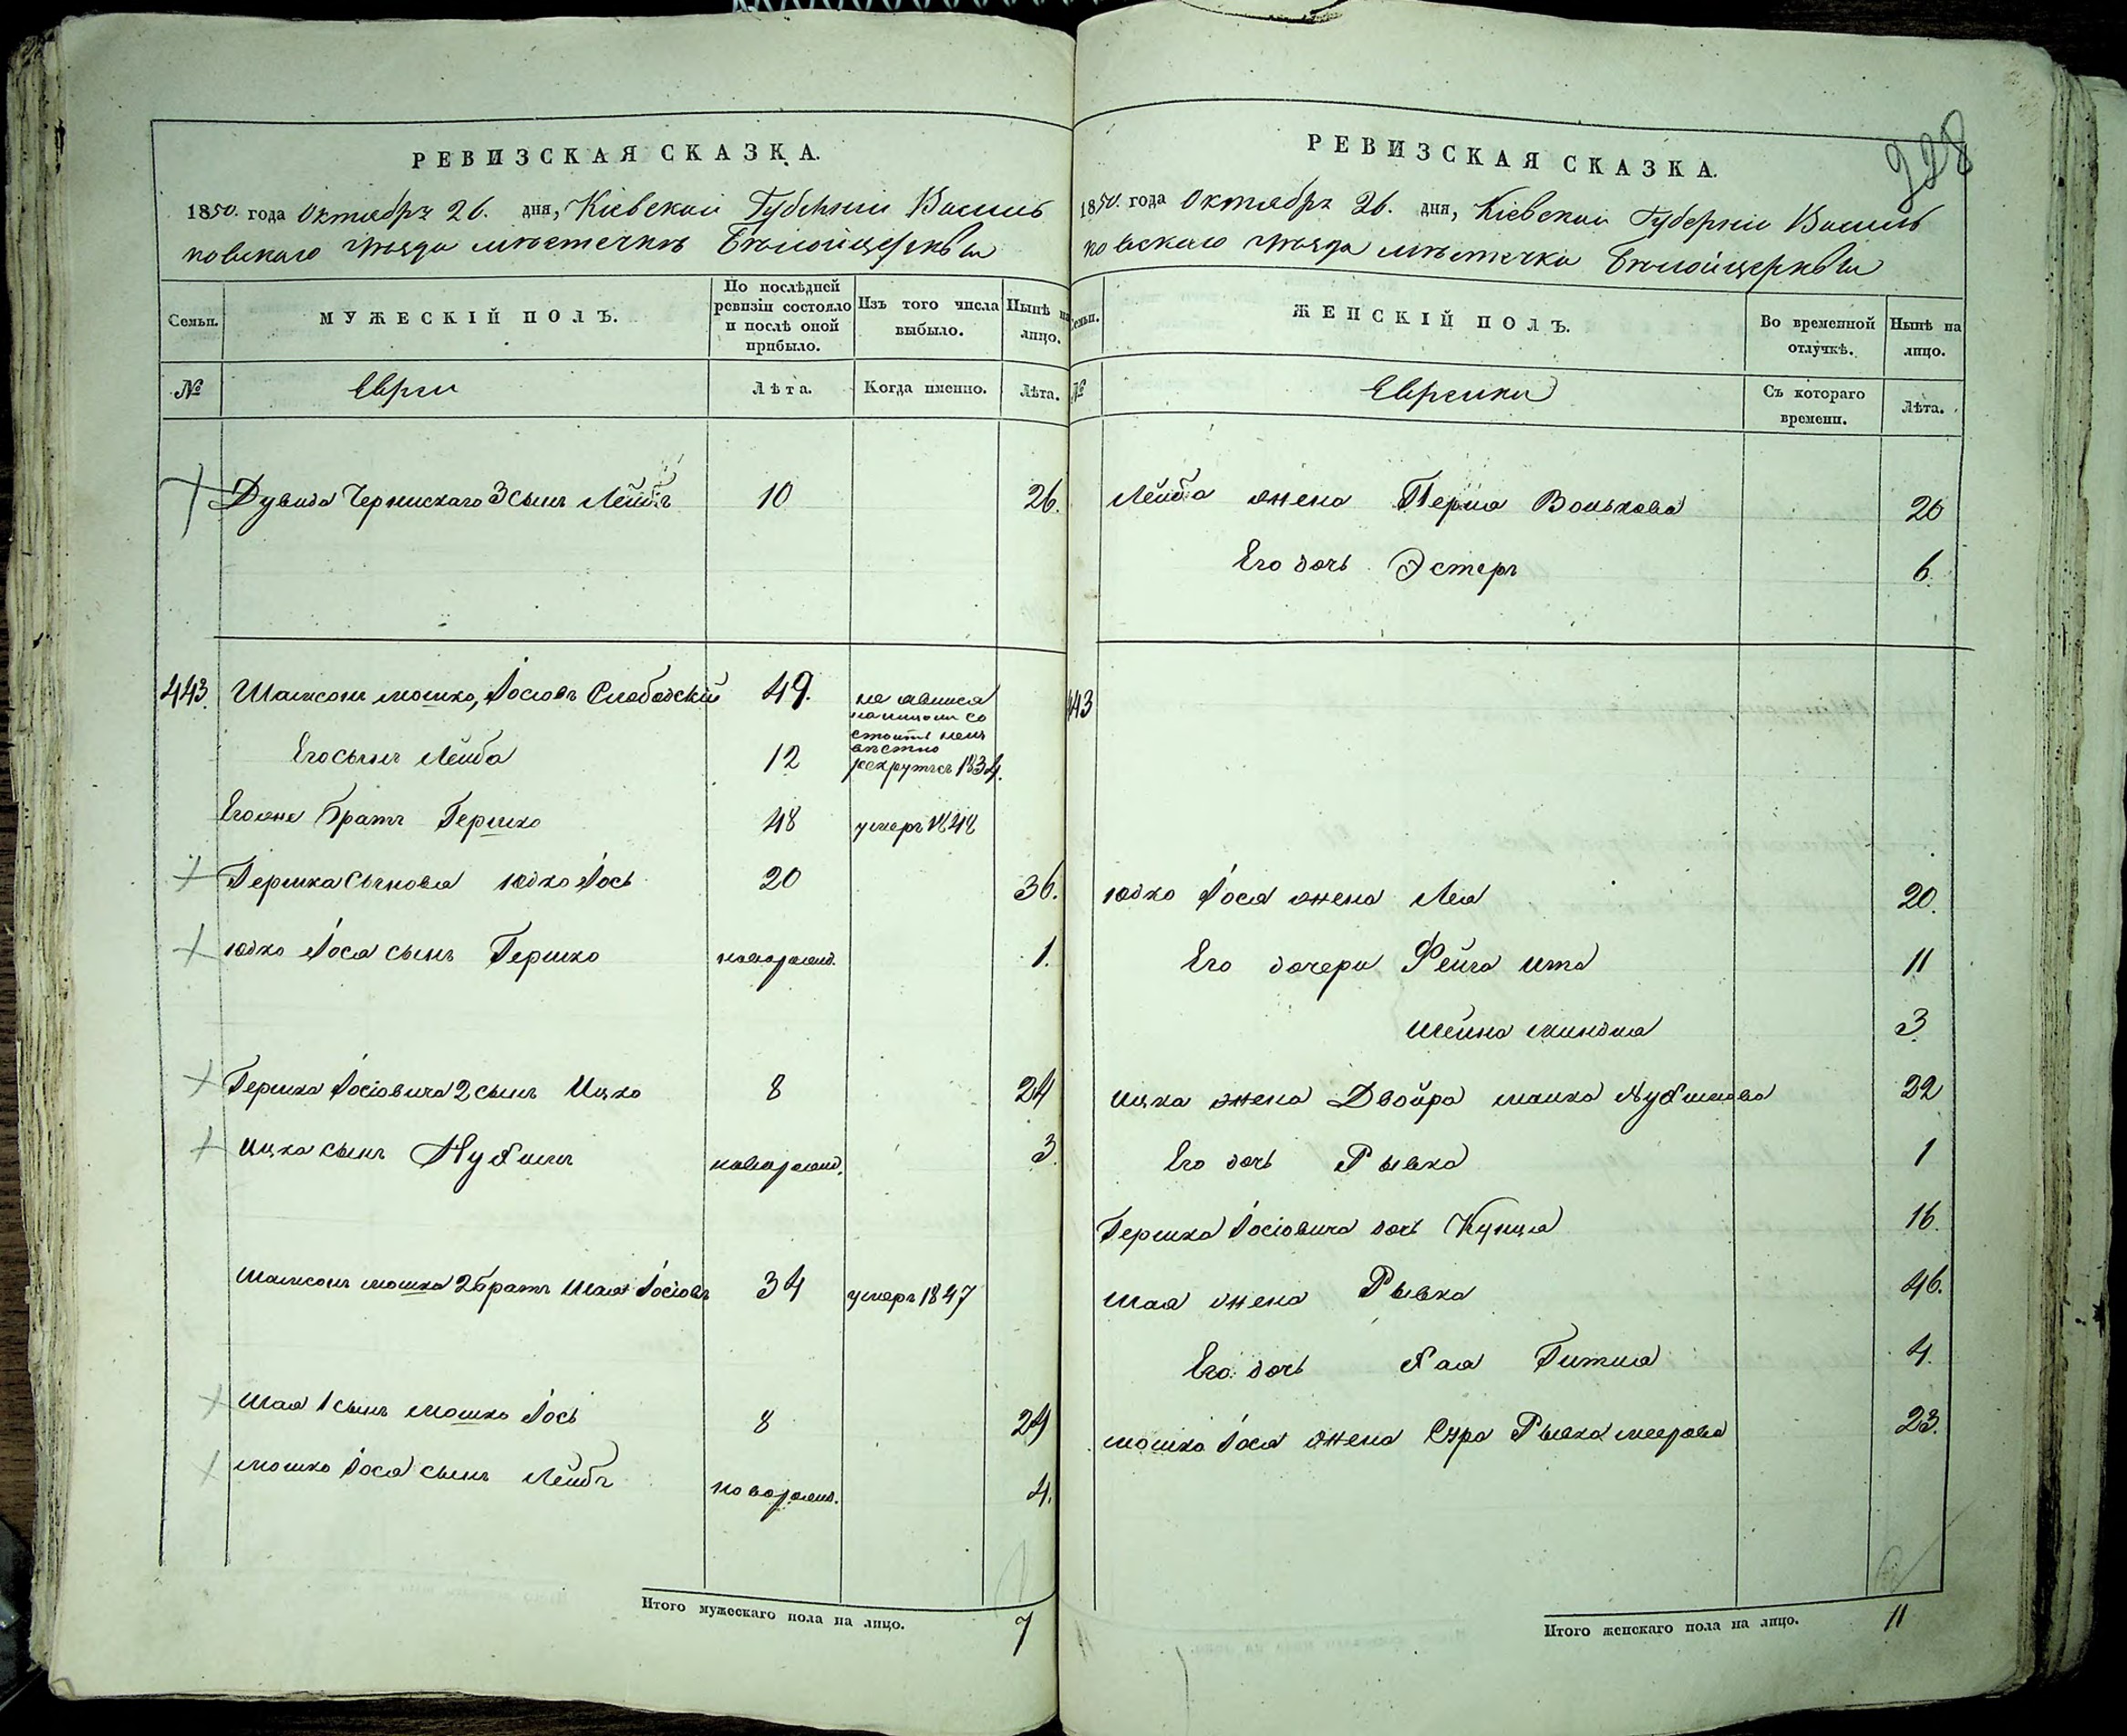 РЕВИЗСКАЯ СКАЗКА.
1850. года Октября 26. дня, Кіевской Губерніи Василь
ковскаго уѣзда мѣстечка Бѣлойцеркви
Семьи.
МУЖЕСКІЙ ПОЛЪ.
По послѣдней ревизіи состояло и послѣ оной прибыло.
Изъ того числа выбыло.
Нынѣ на лицо.
№
Евреи
Лѣта.
Когда именно.
Лѣта.
Дувида Чернискаго 3 сынъ Лейбъ 10 26.
443. Шамсонъ мошко, Іосіовъ Слободскій 49. не явился
на лицо
Его сынъ Лейба 12 рекрутъ въ 1834.
Егоже братъ Гершко 48 умеръ 1848
Гершка сыновья юдко Іось 20 36.
юдко Іося сынъ Гершко новорожд. 1.
Гершка Іосіовича 2 сынъ Ицко 8 24
Ицка сынъ Нухимъ новорожд. 3.
Шамсонъ мошка 2 братъ Шая Іосіовъ 34 умеръ 1847
Шая 1 сынъ мошко Іось 8 24
мошко Іося сынъ Лейбъ новорожд. 4.
Итого мужескаго пола на лицо. 7
РЕВИЗСКАЯ СКАЗКА.
1850. года Октября 26. дня, Кіевской Губерніи Василь
ковскаго уѣзда мѣстечка Бѣлойцеркви
Семьи.
ЖЕНСКІЙ ПОЛЪ.
Во временной отлучкѣ.
Нынѣ на лицо.
№
Еврейки
Съ котораго времени.
Лѣта.
Лейба жена Перля Волькова 26
Его дочь Эстеръ 6.
443
юдко Іося жена Лея 20.
Его дочери Фейга ита 11
шейна миндля 3
Ицка жена Двойра малка Нухимова 22
Его дочь Рывка 1
Гершка Іосіовича дочь Кунця 16.
шая жена Рывка 46.
Его дочь хая Гитля 4.
мошко Іося жена Сура Рывка меерова 23.
Итого женскаго пола на лицо. 11